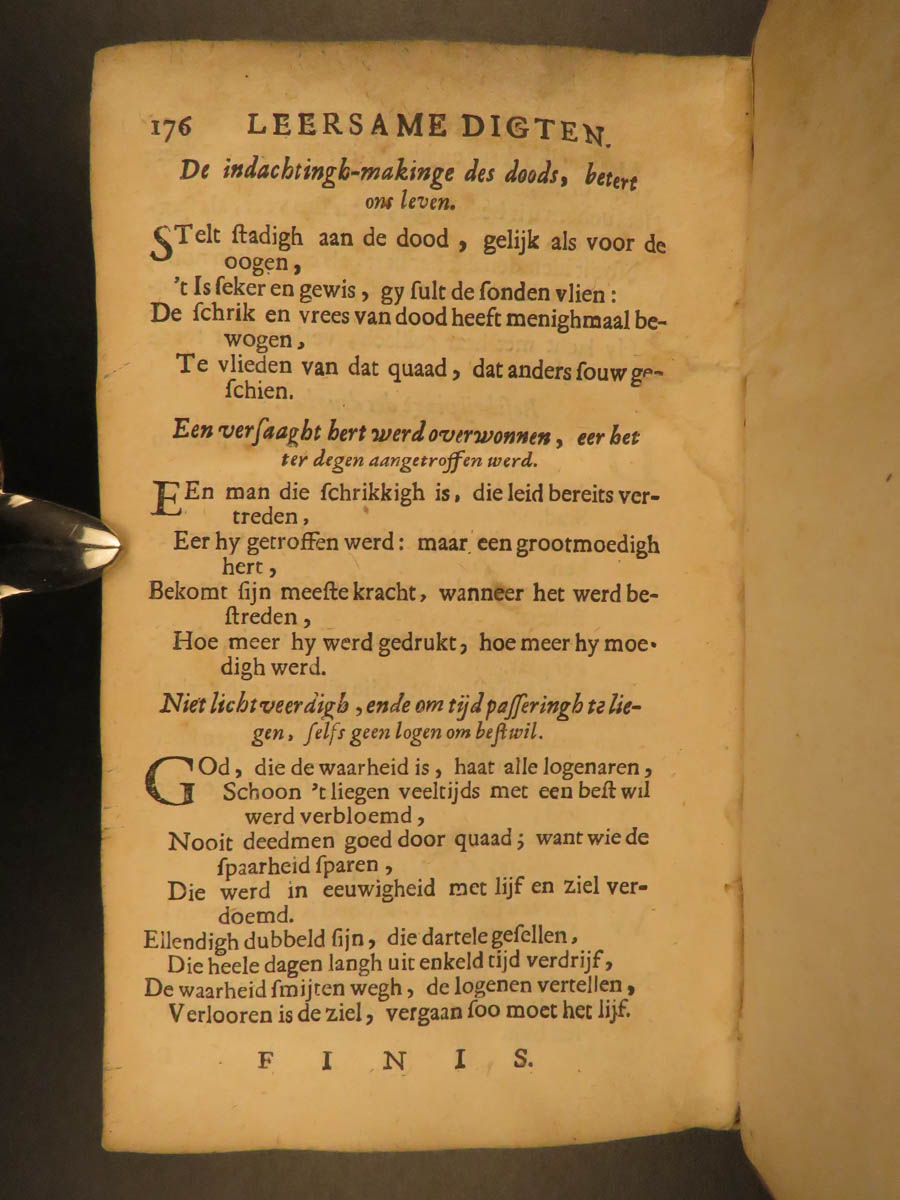 176 LEERSAME DIGTEN.
De indachtingh-makinge des doods, betert
ons leven.
STelt ſtadigh aan de dood, gelijk als voor de
oogen,
't Is ſeker en gewis, gy ſult de ſonden vlien:
De ſchrik en vrees van dood heeft menighmaal be-
wogen,
Te vlieden van dat quaad, dat anders ſouw ge-
ſchien.
Een verſaaght hert werd overwonnen, eer het
ter degen aangetroffen werd.
EEn man die ſchrikkigh is, die leid bereits ver-
treden,
Eer hy getroffen werd: maar een grootmoedigh
hert,
Bekomt ſijn meeſte kracht, wanneer het werd be-
ſtreden,
Hoe meer hy werd gedrukt, hoe meer hy moe-
digh werd.
Niet lichtveerdigh, ende om tijd paſſeringh te lie-
gen, ſelfs geen logen om beſt wil.
GOd, die de waarheid is, haat alle logenaren,
Schoon 't liegen veeltijds met een beſt wil
werd verbloemd,
Nooit deedmen goed door quaad; want wie de
ſpaarheid ſparen,
Die werd in eeuwigheid met lijf en ziel ver-
doemd.
Ellendigh dubbeld ſijn, die dartele geſellen,
Die heele dagen langh uit enkeld tijd verdrijf,
De waarheid ſmijten wegh, de logenen vertellen,
Verlooren is de ziel, vergaan ſoo moet het lijf.
FINIS.